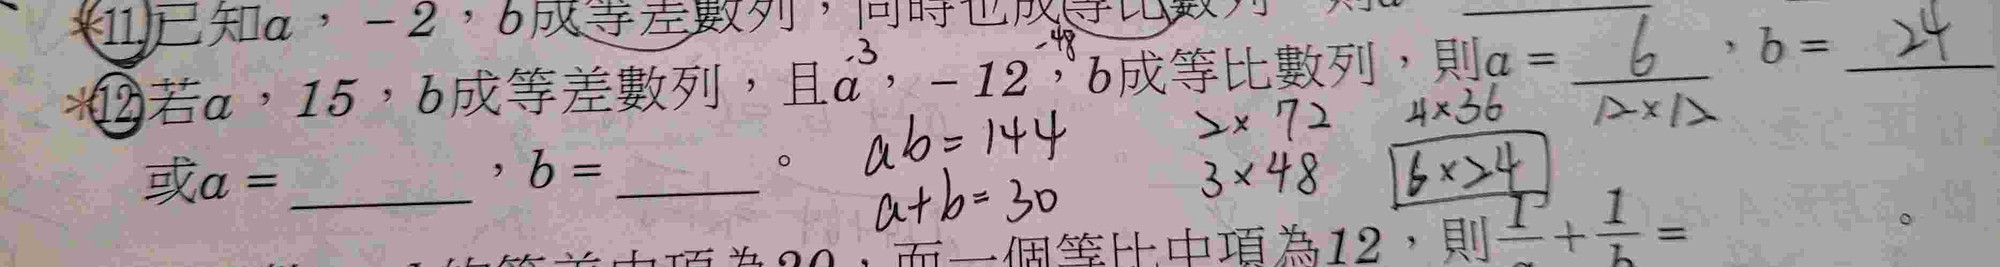 *11.已知a，-2，b成等差數列，同時也成等比數列，則a
*12.若a，15，b成等差數列，且a，-12，b成等比數列，則a= 6 ，b= 24
-3 -48
或a=＿＿＿，b=＿＿＿。
ab=144 2×72 4×36 12×12
a+b=30 3×48 6×24
的等差中項為20，而一個等比中項為12，則1/a+1/b= 。